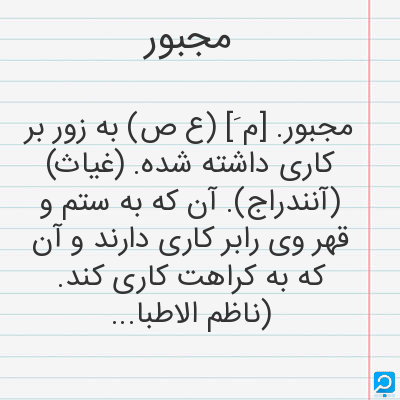 مجبور
مجبور. [م َ] (ع ص) به زور بر
کاری داشته شده. (غیاث)
(آنندراج). آن که به ستم و
قهر وی رابر کاری دارند و آن
که به کراهت کاری کند.
(ناظم الاطبا...